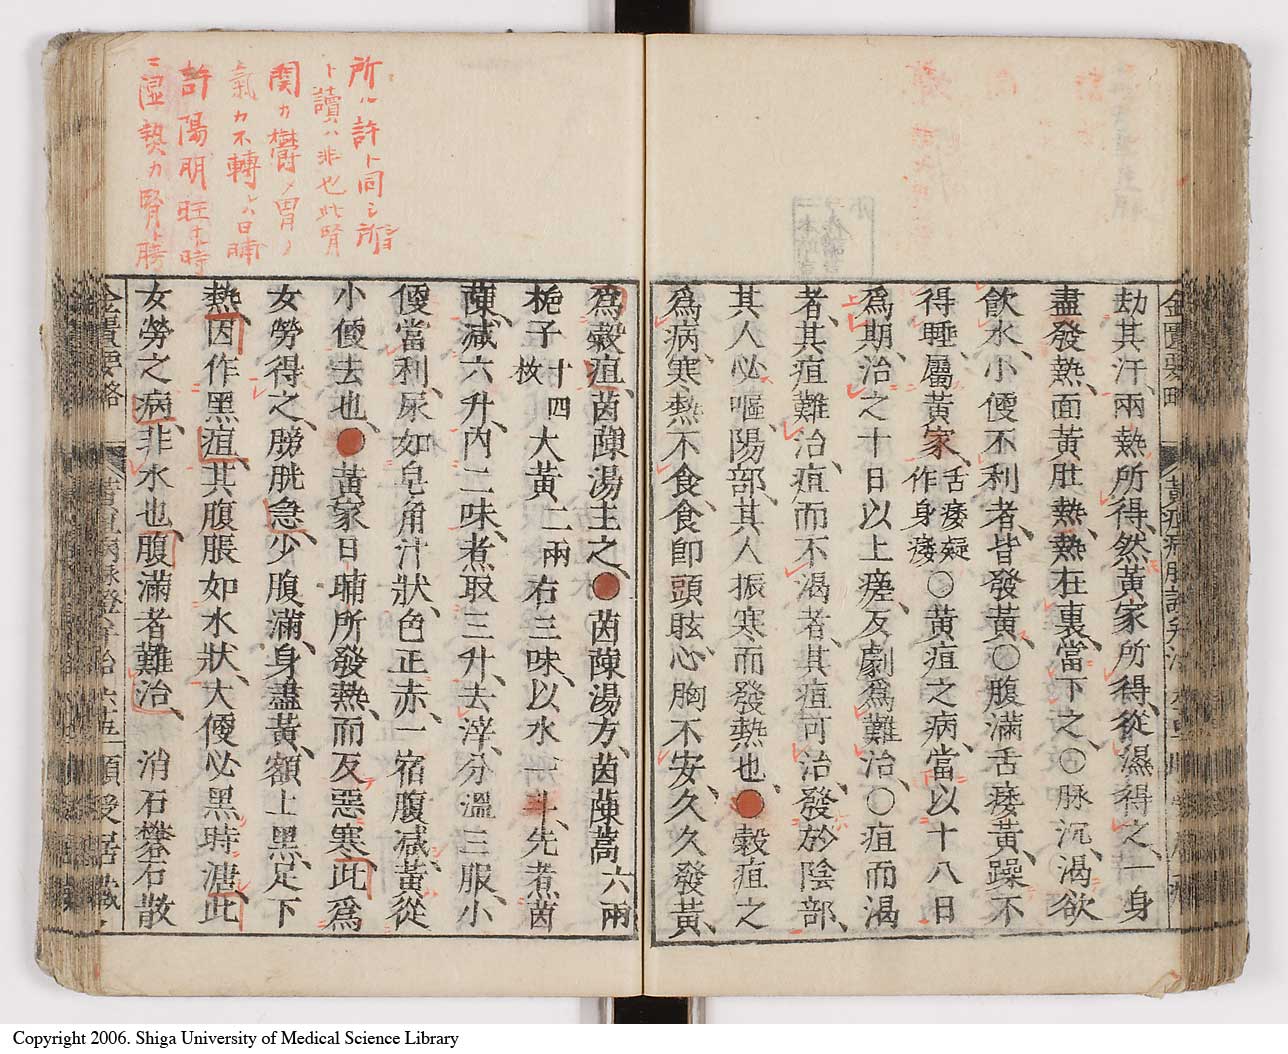 金匱要略
劫其汗、兩熱所得、然黃家所得、從濕得之、一身
盡發熱、面黃肚熱、熱在裏、當下之、○脉沉、渴欲
飲水、小便不利者、皆發黃、○腹滿舌痿黃、躁不
得睡、屬黃家、舌痿疑作身痿○黃疸之病、當以十八日
爲期、治之十日以上瘥、反劇爲難治、○疸而渴
者、其疸難治、疸而不渴者、其疸可治、發於陰部、
其人必嘔、陽部、其人振寒而發熱也、●穀疸之
爲病、寒熱不食、食卽頭眩、心胸不安、久久發黃、
爲穀疸、茵蔯湯主之、●茵蔯湯方、茵蔯蒿六兩
梔子十四枚大黃二兩右三味、以水一斗、先煮茵
蔯、減六升、內二味、煮取三升、去滓、分溫三服、小
便當利、尿如皂角汁狀、色正赤、一宿腹減、黃從
小便去也、●黃家日晡所發熱、而反惡寒、此爲
女勞得之、膀胱急、少腹滿、身盡黃、額上黑、足下
熱、因作黑疸、其腹脹如水狀、大便必黑、時溏、此
女勞之病、非水也、腹滿者難治、消石礬石散
金匱要略
所ハ許ト同シ所
ト讀ハ非也此腎
関カ欝メ胃ノ
氣カ不轉シ日晡
許陽明旺ナル時
ニ湿熱カ腎ト膀
Copyright 2006. Shiga University of Medical Science Library